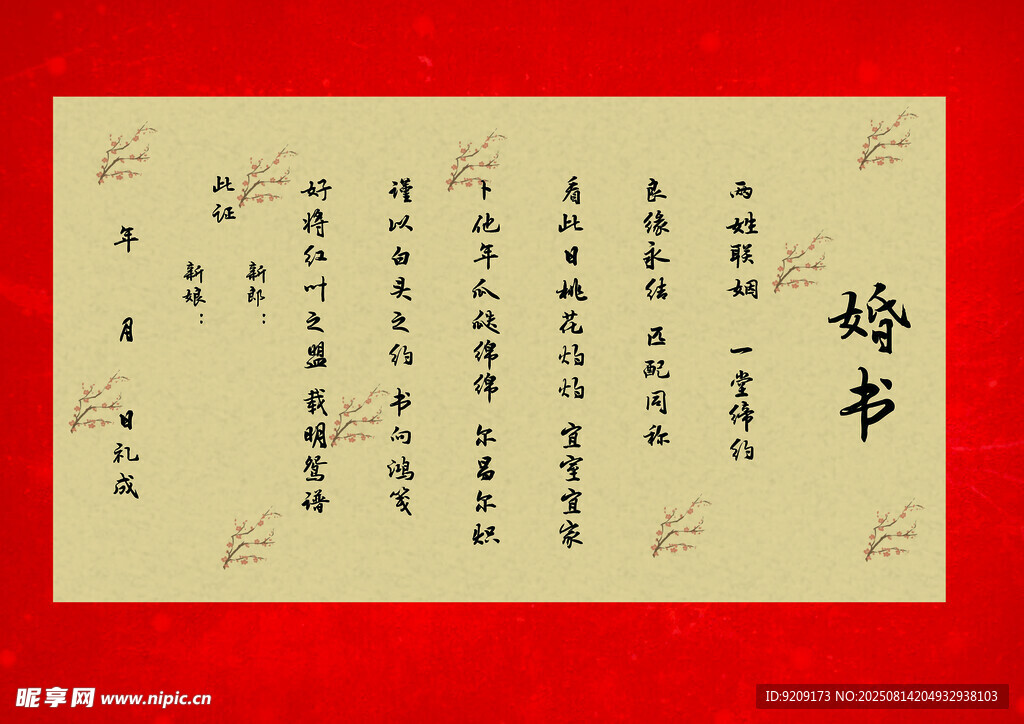 婚书
两姓联姻 一堂缔约
良缘永结 匹配同称
看此日桃花灼灼 宜室宜家
卜他年瓜瓞绵绵 尔昌尔炽
谨以白头之约 书向鸿笺
好将红叶之盟 载明鸳谱
新郎：
此证
新娘：
年 月 日礼成
昵享网 www.nipic.cn
ID:9209173 NO:20250814204932938103